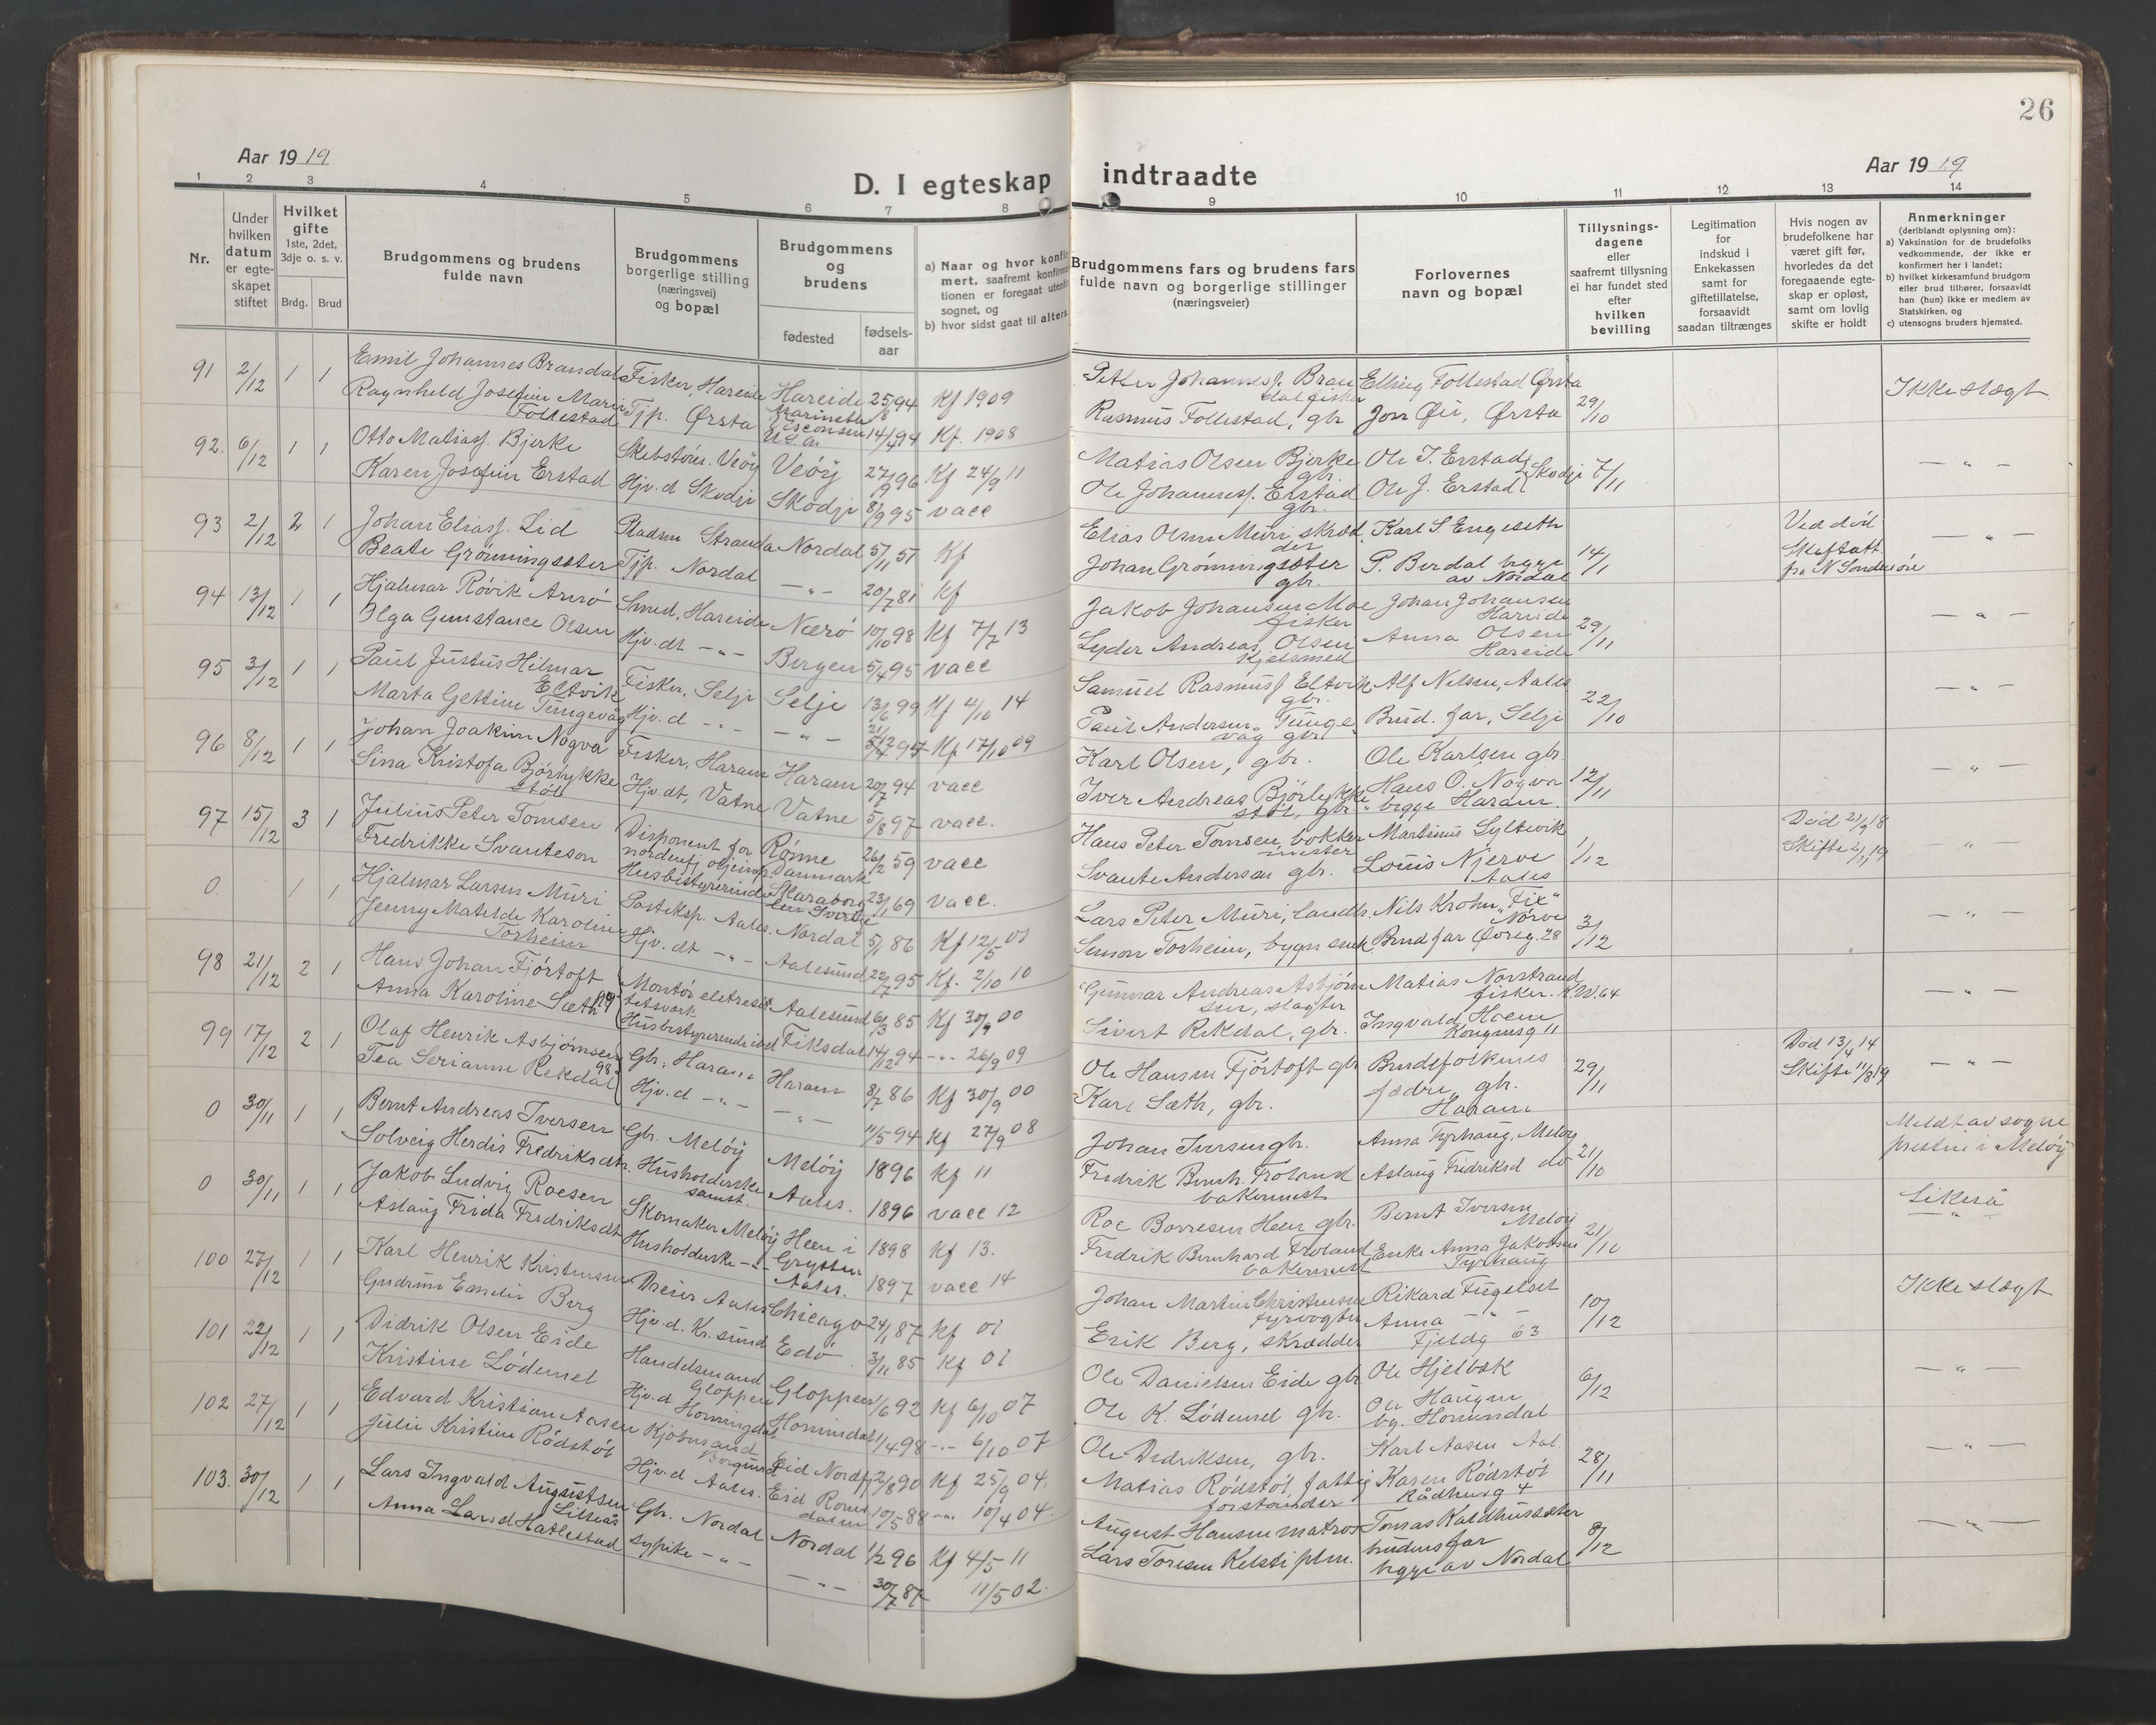 26
Aar 1919
D. I egteskap indtraadte
Aar 1919
1 2 3 4 5 6 7 8 9 10 11 12 13 14
Nr.
Under hvilken datum er egteskapet stiftet
Hvilket gifte 1ste, 2det, 3dje o. s. v.
Brdg. Brud
Brudgommens og brudens fulde navn
Brudgommens borgerlige stilling (næringsvei) og bopæl
Brudgommens og brudens
fødested
fødsels-aar
a) Naar og hvor konfir
mert, saafremt konfirm
tionen er foregaat utenfo
sognet, og
b) hvor sidst gaat til alters
Brudgommens fars og brudens fars fulde navn og borgerlige stillinger (næringsveier)
Forlovernes navn og bopæl
Tillysnings-dagene eller saafremt tillysning ei har fundet sted efter hvilken bevilling
Legitimation for indskud i Enkekassen samt for giftetillatelse, forsaavidt saadan tiltrænges
Hvis nogen av brudefolkene har været gift før, hvorledes da det foregaaende egteskap er opløst, samt om lovlig skifte er holdt
Anmerkninger
(deriblandt oplysning om):
a) Vaksination for de brudefolks vedkommende, der ikke er konfirmert her i landet;
b) hvilket kirkesamfund brudgom eller brud tilhører, forsaavidt han (hun) ikke er medlem av Statskirken, og
c) utensogns bruders hjemsted.
91 2/12 1 1 Emil Johannes Brandal Fisker, Hareide Hareide 25/8 94 Kf 1909 Petter Johannesf. Brandal fisker Elling Follestad Ørsta 29/10 Ikke slægt
Ragnheld Josefine Marie Follestad Tjp. Ørsta Marinette Visconsin U.S.A. 14/4 94 Kf. 1908 Rasmus Follestad, gbr Jon Øie, Ørsta
92. 6/12 1 1 Otto Matiasf. Bjerke Skibstøm. Veöy Veöy 27/9 96 Kf 24/9 11 Matias Olsen Bjerke gbr. Ole J. Erstad Skodje 7/11 — " —
Karen Josefine Erstad Hjv. d Skodje Skodje 8/9 95 vacc Ole Johannesf. Erstad gbr. Ole J. Erstad
93 2/12 2 1 Johan Eliasf. Lid Pladsm Stranda Nordal 5/11 57 Kf Elias Olsen Muri skrædder Karl S. Engeseth 14/1 Ved död — " —
Beate Grønningsæter Tjp. Nordal — " — 20/7 81 Kf Johan Grønningsæter gbr. P. Berdal begge av Nordal Skiftatt. fra N Söndmöre
94 13/12 1 1 Hjalmar Rövik Arnö Smed, Hareide Nærö 10/10 98 Kf 7/7 13 Jakob Johansen Moe fisker Johan Johansen Hareide 29/11 — " —
Olga Gunstance Olsen Hjv. dt — " — Bergen 5/4 95 vacc Lyder Andreas Olsen Kjelsmed Anna Olsen Hareide
95 3/12 1 1 Paul Justus Hilmar Eltvik Fisker, Selje Selje 13/6 99 Kf 4/10 14 Samuel Rasmusf Eltvik gbr. Alf Nelsen, Aales 22/10 — " —
Marta Gettine Tungevåg Hjv. d — " — — " — Kf 17/10 09 Paul Andersen Tungevåg gbr Brud. far, Selje
96 8/12 1 1 Johan Joakim Nogva Fisker, Haram Haram 20/7 94 vacc Karl Olsen, gbr. Ole Karlsen gbr. 12/11 — " —
Sina Kristofa Björlykkestöl Hjv. dt, Vatne Vatne 5/8 97 vacc. Iver Andreas Björlykkestöl, gbr. Hans O. Nogva begge Haram.
97 15/12 3 1 Julius Peter Tomsen Disponent for nordenfj oljeimp. Rönne Danmark 26/2 59 vacc Hans Peter Tomsen, bokkermester Martinus Syltevik 1/12 Död 21/2 18 — " —
Fredrikke Svanteson Husbestyrerinde Skaraborg len Sverke 23/1 69 vacc. Svante Anderson gbr. Louis Njerve Aales Skifte 2/11 19
0. 1 1 Hjalmar Larsen Muri Posteksp. Aales. Nordal 5/1 86 Kf 12/5 01 Lars Peter Muri, landh. Nils Krohn "Fix" Nørve 3/12 — " —
Jenny Matilde Karoline Torheim Hjv. dt — " — Aalesund 22/7 95 Kf. 2/10 10 Simon Torheim, bygn snek. Brud far Øvreg. 28
98 21/12 2 1 Hans Johan Fjörtoft Montör eletresitetsverk Aalesund 6/3 85 Kf 30/9 00 Gunnar Andreas Asbjörnsen, slagter Matias Norstrand fisker. K.W. 64 — " —
Anna Karoline Sæth 99 Husbestyrerende ibd Fiksdal 14/12 94 — " — 26/9 09 Sivert Rekdal, gbr. Ingvald Hoem Kongensg 11
99 17/12 2 1 Olaf Henrik Asbjörnsen Gbr, Haram Haram 8/7 86 Kf 30/9 00 Ole Hansen Fjörtoft gbr Brudefolkenes 29/11 Död 13/4 14 — " —
Tea Serianne Rekdal 98 Hjv. d — " — — " — 11/5 94 Kf 27/9 08 Karl Sæth, gbr. fædre, gbr. Haram Skifte 11/8 19
0 30/11 1 1 Bernt Andreas Iversen Gbr. Melöy Melöy 1896 Kf 11 Johan Iversen gbr. Anna Tyrhaug, Melöy 21/10 Meldt av sogne
Solveig Herdis Fredriksdtr. Husholderske samst. Aales. 1896 vacc 12 Fredrik Bernh. Froland bakermest Aslaug Fredriksd do presten i Melöy
0 30/11 1 1 Jakob Ludvig Roesen Skomaker Melöy Heen i Grytten 1898 Kf 13. Roe Borresen Heen gbr. Bernt Iversen Melöy 21/10 Likeså
Aslaug Frida Fredriksdt Husholderske — " — Aales. 1897 vacc 14 Fredrik Bernhard Froland bakermest Enke Anna Jakobsen Tyrhaug
100 27/12 1 1 Karl Henrik Kristensen Dreier Aales Chicago 24/1 87 Kf 01 Johan Martin Christensen fyrvogter Rikard Fugelset 10/12 Ikke slægt
Gudrun Emilie Berg Hjv. d. Kr. sund Edö 3/11 85 Kf 01 Erik Berg, skrædder Anna — " — Fjeldg 63
101 22/12 1 1 Didrik Olsen Eide Handelsmand Gloppen Gloppen 1/6 92 Kf 6/10 07 Ole Danielsen Eide gbr Ole Hjelbak 6/12 — " —
Kristine Lödemel Hjv. d Horningdal Hornindal 1/4 98 — " — 6/10 07 Ole K. Lödemel gbr. Ole Haugen bg. Hornindal
102 27/12 1 1 Edvard Kristian Aasen Kjöbmand Borgund Eid Nordfj. 2/8 90 Kf 25/9 04. Ole Didriksen, gbr. Karl Aasen Aal. 28/11 — " —
Julie Kristine Rödstöl Hjv. d Aales. Eid Romsdalen 10/5 88 — " — 10/4 04. Matias Rödstöl, fattigforstander Karen Rödstöl Rådhusg 4
103. 30/12 1 1 Lars Ingvald Augustsen Lilleås Gbr. Nordal Nordal 1/2 96 Kf 4/5 11 August Hansen matros Tomas Kaldhussæter 8/12 — " —
Anna Larsd Hatlestad sypike — " — — " — 30/7 87 11/5 02. Lars Toresen Kelsti plm. brudens far begge av Nordal